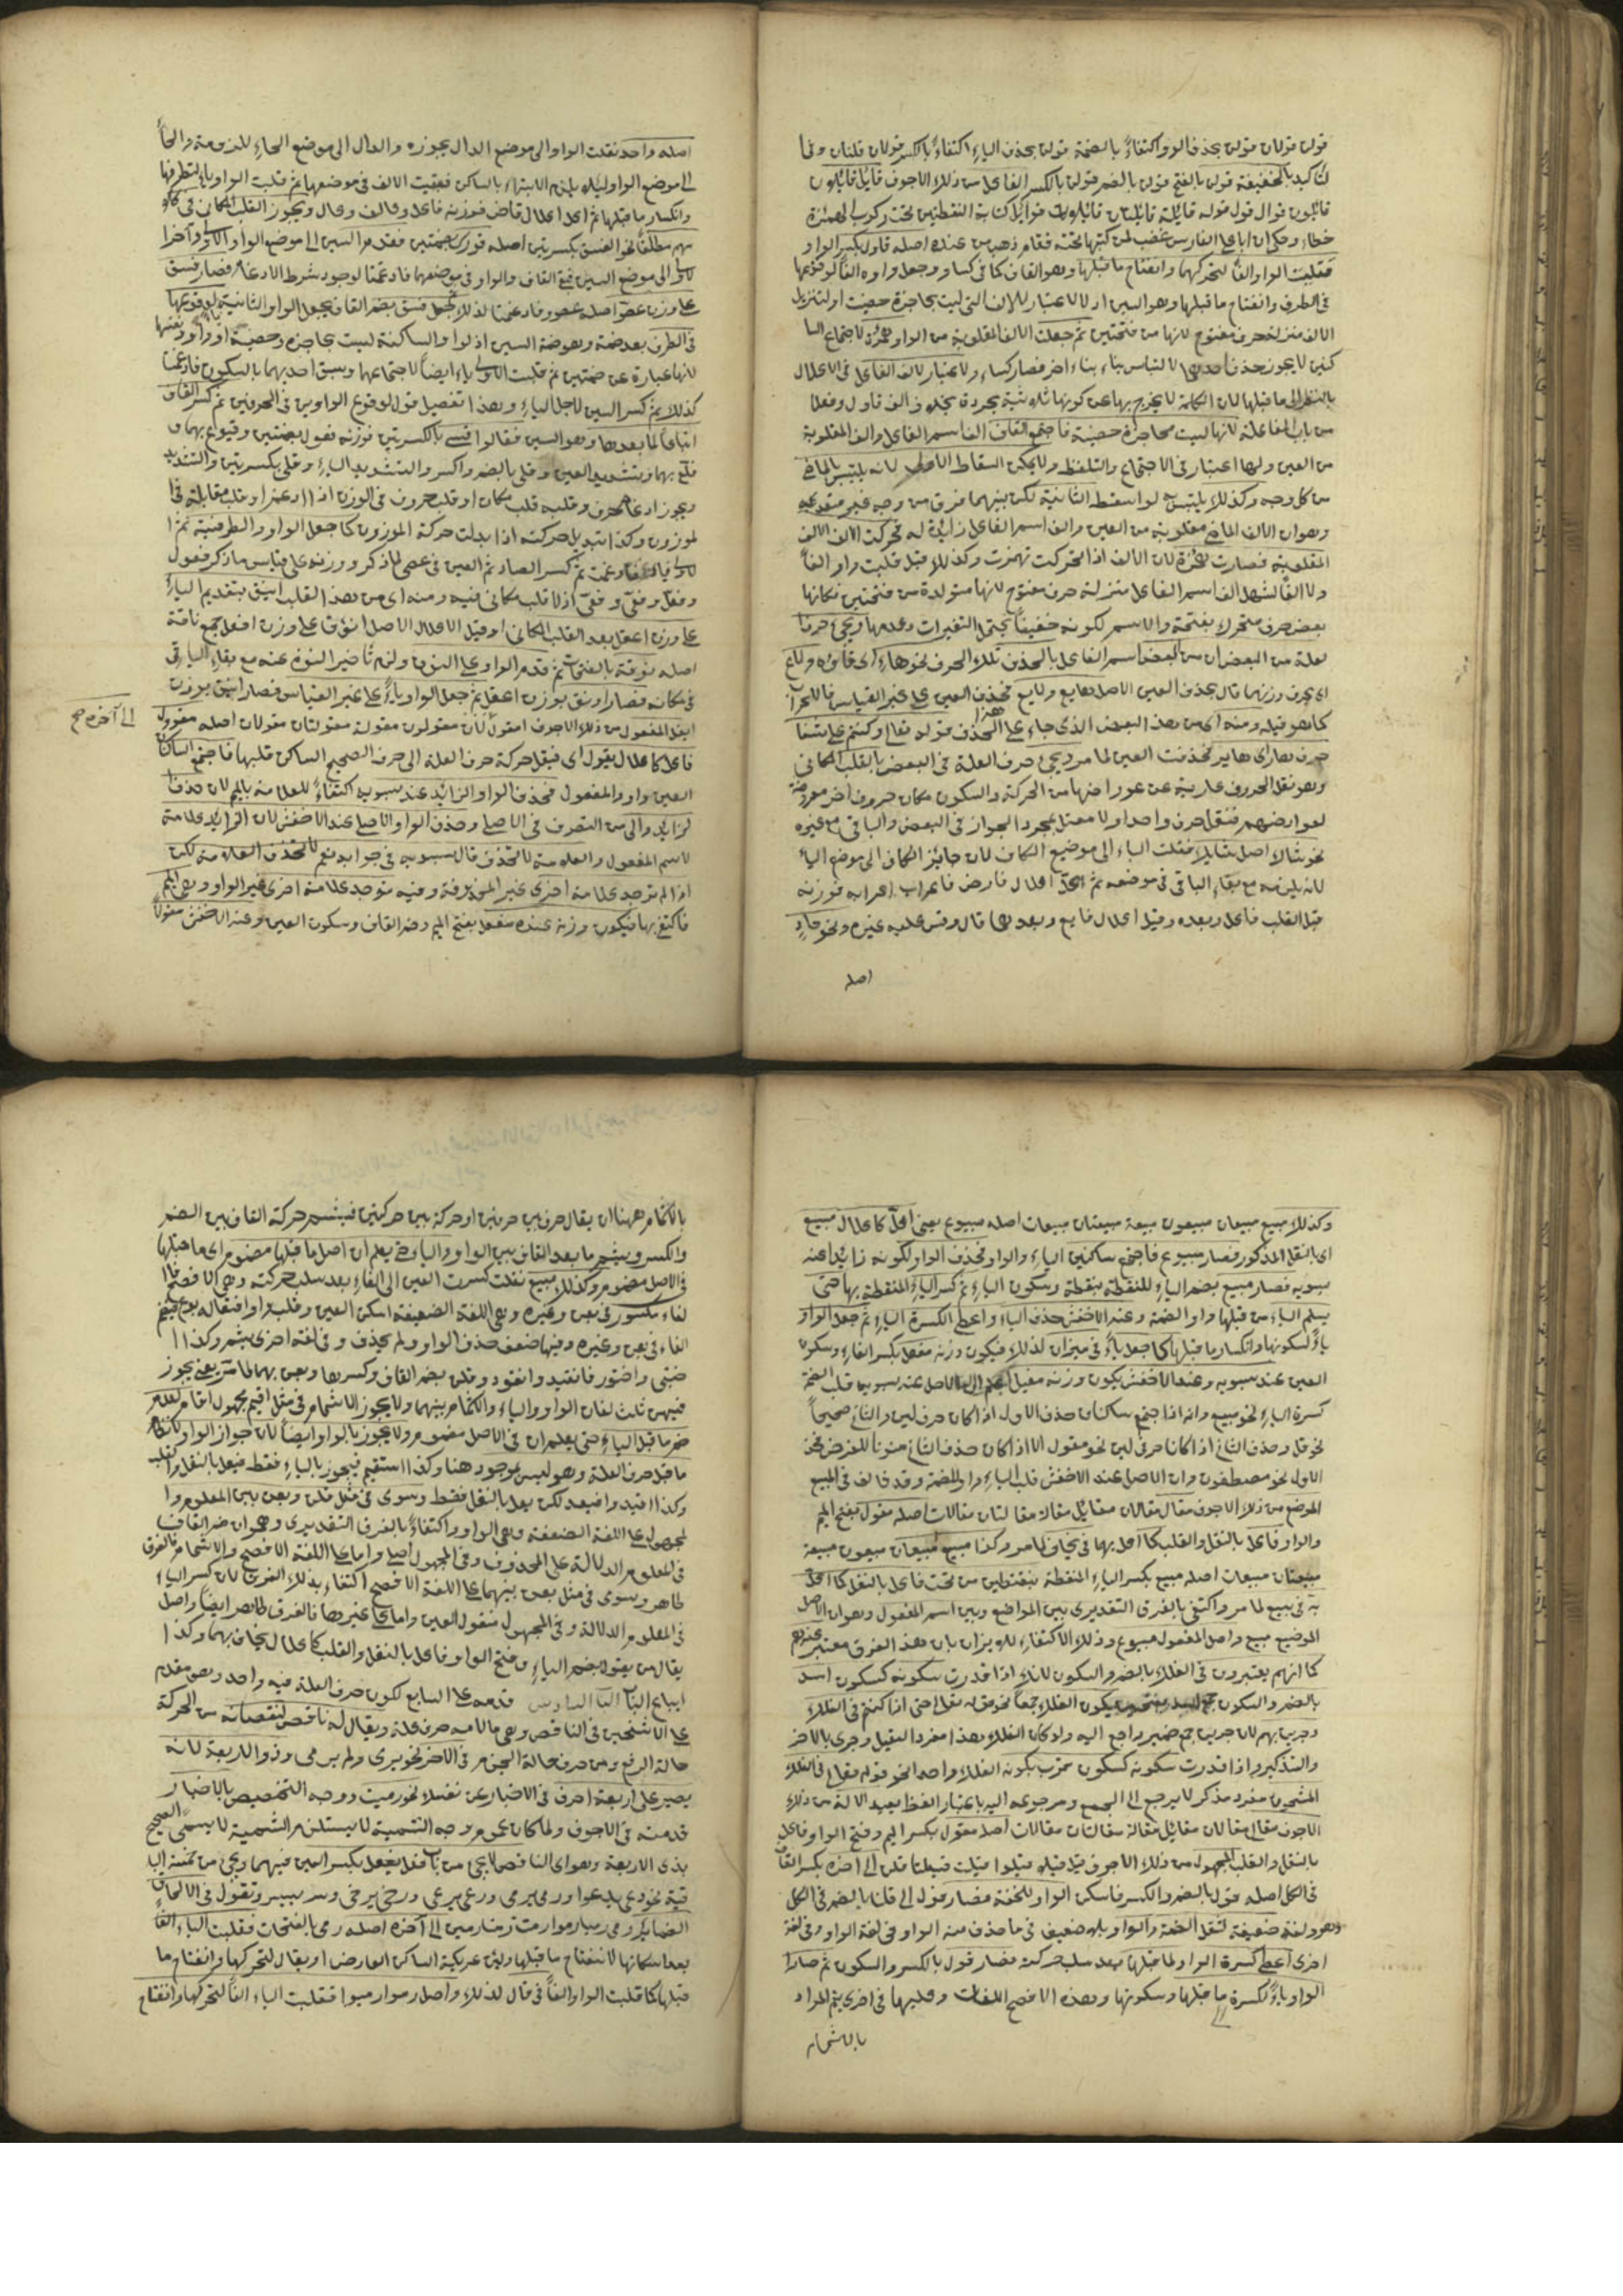 قولن قولان قولن بحذف الواو اكتفاءً بالضمة قولن بحذف الياء اكتفاءً بالكسر قولان قلنان وفى
تأكيد بالخفيفة قولن بالفتح قولن بالضم قولن بالكسر الفاعل من ذلك الاجوف قائل قائلون
قائلون قوال قول قوله قائلة قائلتان قائلات قوائل كتابة النقطتين تحت ركوب الهمزة
خطاء وحكى ان ابا على الفارسى غضب لمن كتبها تحته فقام ذهب من عنده اصله قاول بكسر الواو
فقلبت الواو الفاً لتحركها وانفتاح ما قبلها وهو القاف كما فى كساو وجعل واوه الفاً لوقوعها
فى الطرف وانفتاح ما قبلها وهو السين اذ لا اعتبار للالف التى ليست بحاجزة حصينة او لتنزيل
الالف منزلة حرف مفتوح لانها من فتحتين ثم جعلت الالف المقلوبة من الواو همزة لاجتماع السا
كنين لا يجوز حذف احديهما لالتباس بناء ببناء اخر فصار كساء ولا اعتبار لالف الفاعل فى الاعلال
بالنظر الى ما قبلها لان الكلمة لا يخرج بها عن كونها ثلاثية مجردة بخلاف الف قاول وفعلها
من باب المفاعلة لانها ليست بحاجزة حصينة فاجتمع الفان الف اسم الفاعل والف المقلوبة
من العين ولهما اعتبار فى الاجتماع والتلفظ ولا يمكن اسقاط الاولى لانه يلتبس بالماضى
من كل وجه وكذلك يلتبس به لو اسقط الثانية لكن بينهما فرق من وجه غير معتد به
وهو ان الالف الماضى مقلوبة من العين والف اسم الفاعل زائدة له فحركت الالف
المقلوبة فصارت همزة لان الالف اذا تحركت تهمزت وكذلك قيل قلبت واو الفاً
بعض حرف متحرك بفتحة والاسم لكونه خفيفاً يحتمل التغيرات وعدمها ويجئ حرف
لعلة من البعض ان من بعض اسم الفاعل بالحذف تلك الحرف نحو هاع
اى بحرف وزنهما قال بحذف العين الاصل هايع ولايع فحذف العين على غير القياس
كما هو قيله ومنه اى من هذا البعض الذى جاء على هذا الحذف قوله تعالى وكنتم على شفا
جرف هار اى هاير فحذفت العين لما مر ويجئ حرف العلة فى البعض بالقلب المكانى
وهو نقل الحروف عارية عن عوارضها من الحركة والسكون مكان حروف اخر معروضة
لعوارضهم فنقل حرف واحد اولا معتل بمجرد الجواز فى البعض والباقى مع غيره
نحو شاك اصله شايك فنقلت الياء الى موضع الكاف لان جائز الكاف الى موضع الياء
لانه يلزمه مع بقاء الباقى فى موضعه ثم اعل اعلال قاض فاعراب اعرابه فوزنه
قبل القلب فاعل وبعده وقيل اعلال فايع وبعدها فال وقس عليه غيره ونحو حادٍ
اصله
اصله واحد نقلت الواو الى موضع الدال بجوزه والدال الى موضع الحاء للزومه والحاء
الى موضع الواو لئلا يلزم الابتداء بالساكن فبقيت الالف فى موضعها ثم قلبت الواو ياء لتطرفها
وانكسار ما قبلها ثم اعل اعلال قاض فوزنه فاعل وعالف وعال ويجوز القلب المكانى فى كلا
مهم مطلقاً نحو القسى بكسرتين اصله قووس بضمتين فقدم السين الى موضع الواو الاولى وآخرا
لاولى الى موضع السين فبقى القاف والواو فى موضعهما فادغمتا لوجود شرط الادغام فصار قسو
على وزن عصوّ اصله عصوو فادغمتا لذلك فجعل قسى بضم القاف بجعل الواو الثانية لوقوعها
فى الطرف بعد ضمة وهو ضمة السين اذ الواو الساكنة ليست بحاجزة حصينة
لانها عبارة عن ضمتين ثم قلبت الاولى ياء ايضاً لاجتماعهما وسبق احديهما بالسكون فادغمتا
كذلك ثم كسر السين لاجل الياء وهذا تفصيل قول لوقوع الواوين فى الحرفين ثم كسر القاف
اتباعاً لما بعدها وهو السين فقالوا قسى بالكسرتين فوزنه فعول بضمتين
ويجوز ادغام حرف وقلبه قلب مكان او قلب حروف فى الوزن اذا ادغم او قلب مقابله فى ا
لموزون وكذا تبديل حركته اذا بدلت حركة الموزون كما جعل الواو الطرفية ثم ا
لاولى ياء فادغمت ثم كسر الصاد ثم العين فى عصى لما ذكر ووزنه على قياس ما ذكر فعول
وفعل وفعىّ وفعىّ اذ لا قلب مكانى فيه ومنه اى من هذا القلب اينق بتقديم الياء
على وزن اعفل بعد القلب المكانى او قيل الاعلال الاصل انوق على وزن افعل جمع ناقة
اصله نوقة بالفتحات ثم قدم الواو على النون ولزم تأخير النون عنه مع بقاء الباقى
فى مكانه فصار اونق بوزن اعفل ثم جعل الواو ياءً على غير القياس فصار اينق بوزن
ايفل المفعول من ذلك الاجوف مقول مقولان مقولون مقولة مقولتان مقولات اصله مقوول
الى آخره صح
فاعل كاعلال يقول اى فنقل حركة حرف العلة الى حرف الصحيح الساكن قلبها فاجتمع الساكنان
العين واو المفعول فحذف الواو الزائد عند سيبويه اكتفاءً للعلامة بالميم لان حذف ا
لزائد اولى من التصرف فى الاصل وحذف الواو الاصلى عند الاخفش لان الزائد علامة
لاسم المفعول والعلامة لا تحذف قال سيبويه فى جوابه نعم لا تحذف العلامة لكن
اذا لم توجد علامة اخرى غير المحذوفة وفيه توجد علامة اخرى غير الواو وهى الميم
فاكتفى بها فيكون وزنه عنده مفعل بفتح الميم وضم الفاء وسكون العين وعند الاخفش مفول
وكذلك مبيع مبيعان مبيعون مبيعة مبيعتان مبيعات اصله مبيوع يعنى اعل كاعلال مبيع
اى بالنقل المذكور فصار مبيوع فاجتمع ساكنين الياء والواو فحذف الواو لكونه زائداً عند
سيبويه فصار مبيع بضم الياء للنقطة بنقطة وسكون الياء ثم كسر الباء المنقطة بها حتى
يسلم الياء من قبلها واو الضمة وعند الاخفش حذف الياء واعطى الكسرة الباء ثم جعل الواو
ياءً لسكونها وانكسار ما قبلها كما جعل ياءً فى ميزان لذلك فيكون وزنه مفعل بكسر الفاء وسكون
العين عند سيبويه وعند الاخفش يكون وزنه مفيل
كسرة الياء نحو مبيع وانه اذا اجتمع ساكنان حذف الاول اذا كان حرف لين والثانى صحيحاً
نحو قل وحذف الثانى اذا كانا حرفى لين نحو مقول الا اذا كان حذف الثانى منوناً للغرض فحذف
الاول نحو مصطفون وان الاصل عند الاخفش قلب الياء واو للضمة وقد خالف فى المبيع
الموضع من ذلك الاجوف مقال مقالان مقائل مقالة مقالتان مقالات اصله مقول بفتح الميم
والواو فاعل بالنقل والقلب كما اعل بهما فى يخاف لما مر وكذا مبيع مبيعان مبيعون مبيعة
مبيعتان مبيعات اصله مبيع بكسر الياء المنقطة بنقطتين من تحت فاعل بالنقل كما اعل
به فى يبيع لما مر واكتفى بالفرق التقديرى بين المواضع وبين اسم المفعول وهو ان الاصل
الموضع مبيع واصل المفعول مبيوع وذلك الاكتفاء للايزان بان هذا الفرق معتبر عندهم
كما انهم يعتبرون فى الفلك بالضم والسكون لانك اذا قدرت سكونه كسكون اسد
بالضم والسكون جمع اسد بفتحتين يكون الفلك جمعاً نحو قوله تعالى حتى اذا كنتم فى الفلك
وجرين بهم لان جرين جمع ضمير راجع اليه ولو كان الفلك بهذا مفرداً لقيل وجرى بالاخر
والتذكير واذا قدرت سكونه كسكون حرب يكون الفلك واحداً نحو قوله تعالى فى الفلك
المشحون مفرد مذكر لا يرجع الى الجمع ومرجوعه اليه باعتبار لفظ بعيد الالة من ذلك
الاجوف مقال مقالان مقائل مقالة مقالتان مقالات اصله مقول بكسر الميم وفتح الواو فاعل
بالنقل والقلب المجهول من ذلك الاجوف قيل قيلا قيلوا قيلت قيلتا قلن الى اخره بكسر القاف
فى الكل اصله قول بالضم والكسر فاسكن الواو للخفة فصار قول الى قلنا بالضم فى الكل
وهو ولغة ضعيفة لثقل الضمة والواو بله ضعيف فى ما حذف منه الواو وفى لغة الواو وفى لغة
اخرى اعطى كسرة الواو لما قبلها بعد سلب حركته فصار قول بالكسر والسكون ثم صار ا
الواو ياءً لكسرة ما قبلها وسكونها وهذه الافصح اللغات وقليها فى اخرى يتم المراد
بالاشمام
بالاشمام ههنا ان يقال حرف بين حرفين او حركة بين حركتين فيشم حركة القاف بين الضم
والكسر ويشم ما بعد القاف بين الواو والياء حتى يعلم ان اصل ما قبلها مضموم اى ما قبلها
فى الاصل مضموم وكذلك بيع نقلت كسرت العين الى الفاء بعد سلب حركته وهى الافصح فا
لفاء مكسور فى بعن وغيره وهى اللغة الضعيفة اسكن العين وقلب واوا فيقال بوع فيضم
الفاء فى بعن وغيره وفيها ضعف حذف الواو ولم يحذف وفى لغة اخرى يشم وكذا ا
ختير واختور فانقيد وانقود وقلن بضم القاف وكسرها وبعن بهما لما مر يعنى يجوز
فيهن ثلث لغات الواو والياء والاشمام بينهما ولا يجوز الاشمام فى مثل اقيم مجهول اقام لعدم
ضم ما قبل الياء حتى يعلم ان فى الاصل مضموم ولا يجوز بالواو ايضاً لان جواز الواو لانضمام
ما قبل حرف العلة وهو ليس بموجود هنا وكذا استقيم فيجوز بالياء فقط فيعل بالنقل والقلب
وكذا اقيد وابيعد لكن يعل بالنقل فقط وسوى فى مثل قلن وبعن بين المعلوم وا
لمجهول على اللغة الضعيفة وهى الواو واكتفاءً بالفرق التقديرى وهو ان ضم القاف
فى المعلوم للدلالة على المحذوف وفى المجهول اصلى واما على اللغة الافصح والاشمام فالفرق
ظاهر وسوى فى مثل بعن بينهما على اللغة الافصح اكتفاء بذلك الفرق لان كسر الباء
فى المعلوم للدلالة وفى المجهول منقول العين واما على غيرها فالفرق ظاهر ايضاً واصل
يقال من يقول بضم الياء وفتح الواو فاعل بالنقل والقلب كاعلال يخاف بهما وكذا ا
يباع الباب السادس قدمه على السابع لكون حرف العلة فيه واحد وهى مقدم
على الاثنين فى الناقص وهى ما لامه حرف علة ويقال له ناقص لنقصانه من الحركة
حالة الرفع ومن حرف حالة الجزم فى الاخر نحو يرمى ولم يرمى وذو الاربعة لانه
يصير على اربعة احرف فى الاخبار عن نفسك نحو رميت ووجه التخصيص بالاخبار
قدمت فى الاجوف ولما كان عموم وجه التسمية لا يستلزم التسمية لا يسمى الصحيح
بذى الاربعة وهو اى الناقص لا يجئ من باب فعل يفعل بكسر العين فيهما ويجئ من خمسة البا
قية نحو دعى يدعوا ورمى يرمى ورعى يرعى ورضى يرضى وسرو يسرو وتقول فى الالحاق
الضمائر رمى رميا رموا رمت رمتا رمين الى آخره اصله رمى بالفتحات فقلبت الياء الفاً
بعد اسكانها لانفتاح ما قبلها ولين عريكة الساكن العارض او يقال لتحركها وانفتاح ما
قبلها كما قلبت الواو الفاً فى قال لذلك واصل رموا رميوا فقلبت الياء الفاً لتحركها وانفتاح